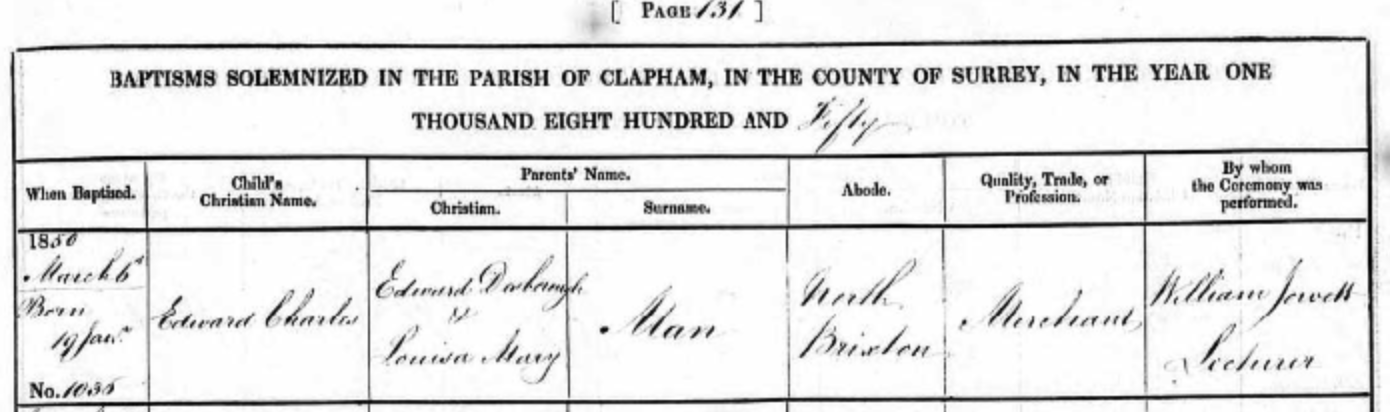 [ PAGE 131 ]
BAPTISMS SOLEMNIZED IN THE PARISH OF CLAPHAM, IN THE COUNTY OF SURREY, IN THE YEAR ONE
THOUSAND EIGHT HUNDRED AND Fifty
When Baptised.
Child's
Christian Name.
Parents' Name.
Christian.
Surname.
Abode.
Quality, Trade, or
Profession.
By whom
the Ceremony was
performed.
1850
March 6
Born
19 Jan.
No. 1035
Edward Charles
Edward Desborough
&
Louisa Mary
Man
North
Brixton
Merchant
William Jowett
Lecturer